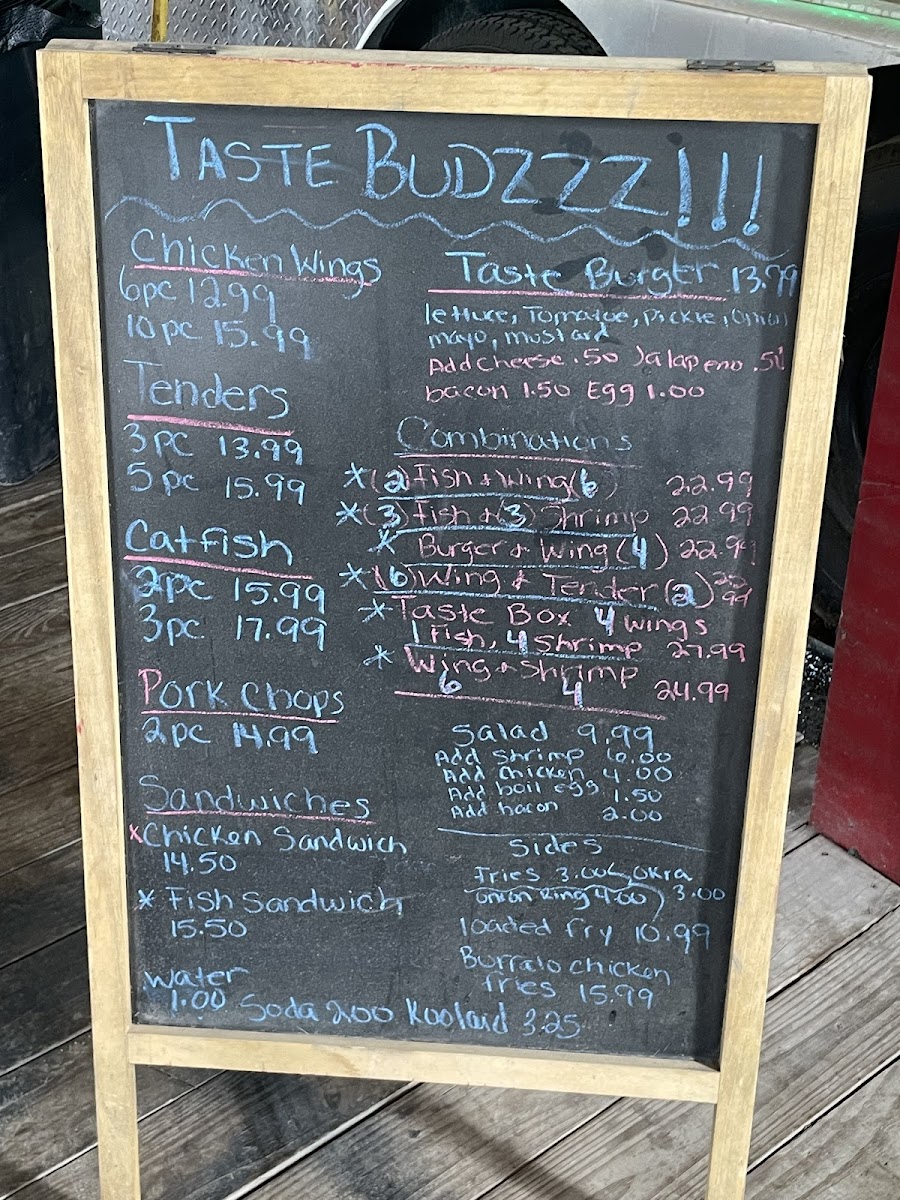 TASTE BUDZZZ!!!
Chicken Wings
6pc 12.99
10pc 15.99
Tenders
3pc 13.99
5pc 15.99
Catfish
2pc 15.99
3pc 17.99
Pork Chops
2pc 14.99
Sandwiches
xChicken Sandwich
14.50
* Fish Sandwich
15.50
Water
1.00 Soda 2.00 Koolaid 3.25
Taste Burger 13.99
lettuce, Tomatoe, pickle, onion
mayo, mustard
Add cheese .50 Jalapeno .50
bacon 1.50 Egg 1.00
Combinations
*(2)Fish & Wing(6) 22.99
*(3)Fish & (3) Shrimp 22.99
* Burger & Wing (4) 22.99
*(6)Wing & Tender (2) 22.99
*Taste Box 4 wings
1 Fish, 4 Shrimp 27.99
* Wing & Shrimp
6 4 24.99
Salad 9.99
Add Shrimp 6.00
Add Chicken 4.00
Add boil egg 1.50
Add bacon 2.00
Sides
Fries 3.00 Okra
onion Ring 4.00 3.00
loaded fry 10.99
Buffalo chicken
fries 15.99